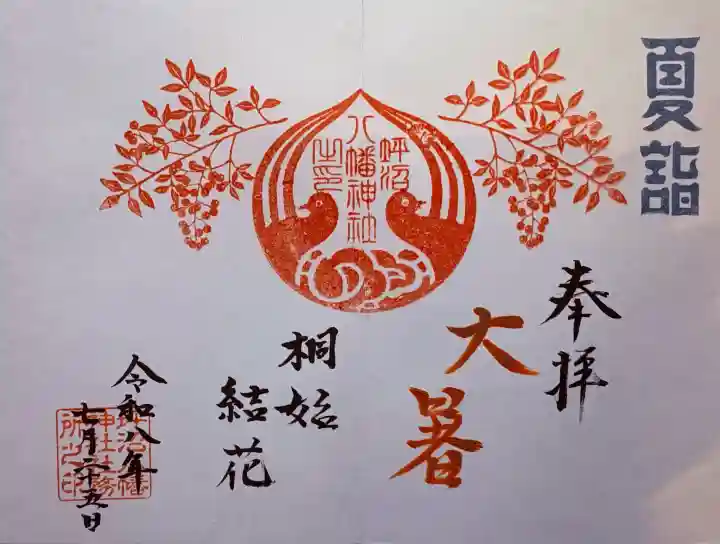 夏詣
奉拝
大暑
坪沼
八幡神社
之印
桐始
結花
令和八年
七月二十五日
坪沼八幡
神社社務
所之印